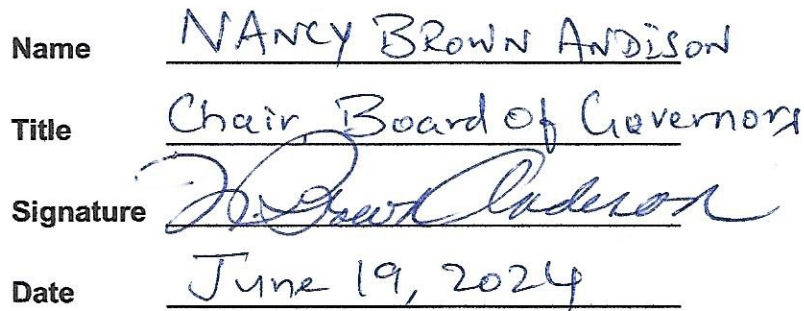 Name NANCY BROWN ANDISON
Title Chair, Board of Governors
Signature N. Brown Andison
Date June 19, 2024